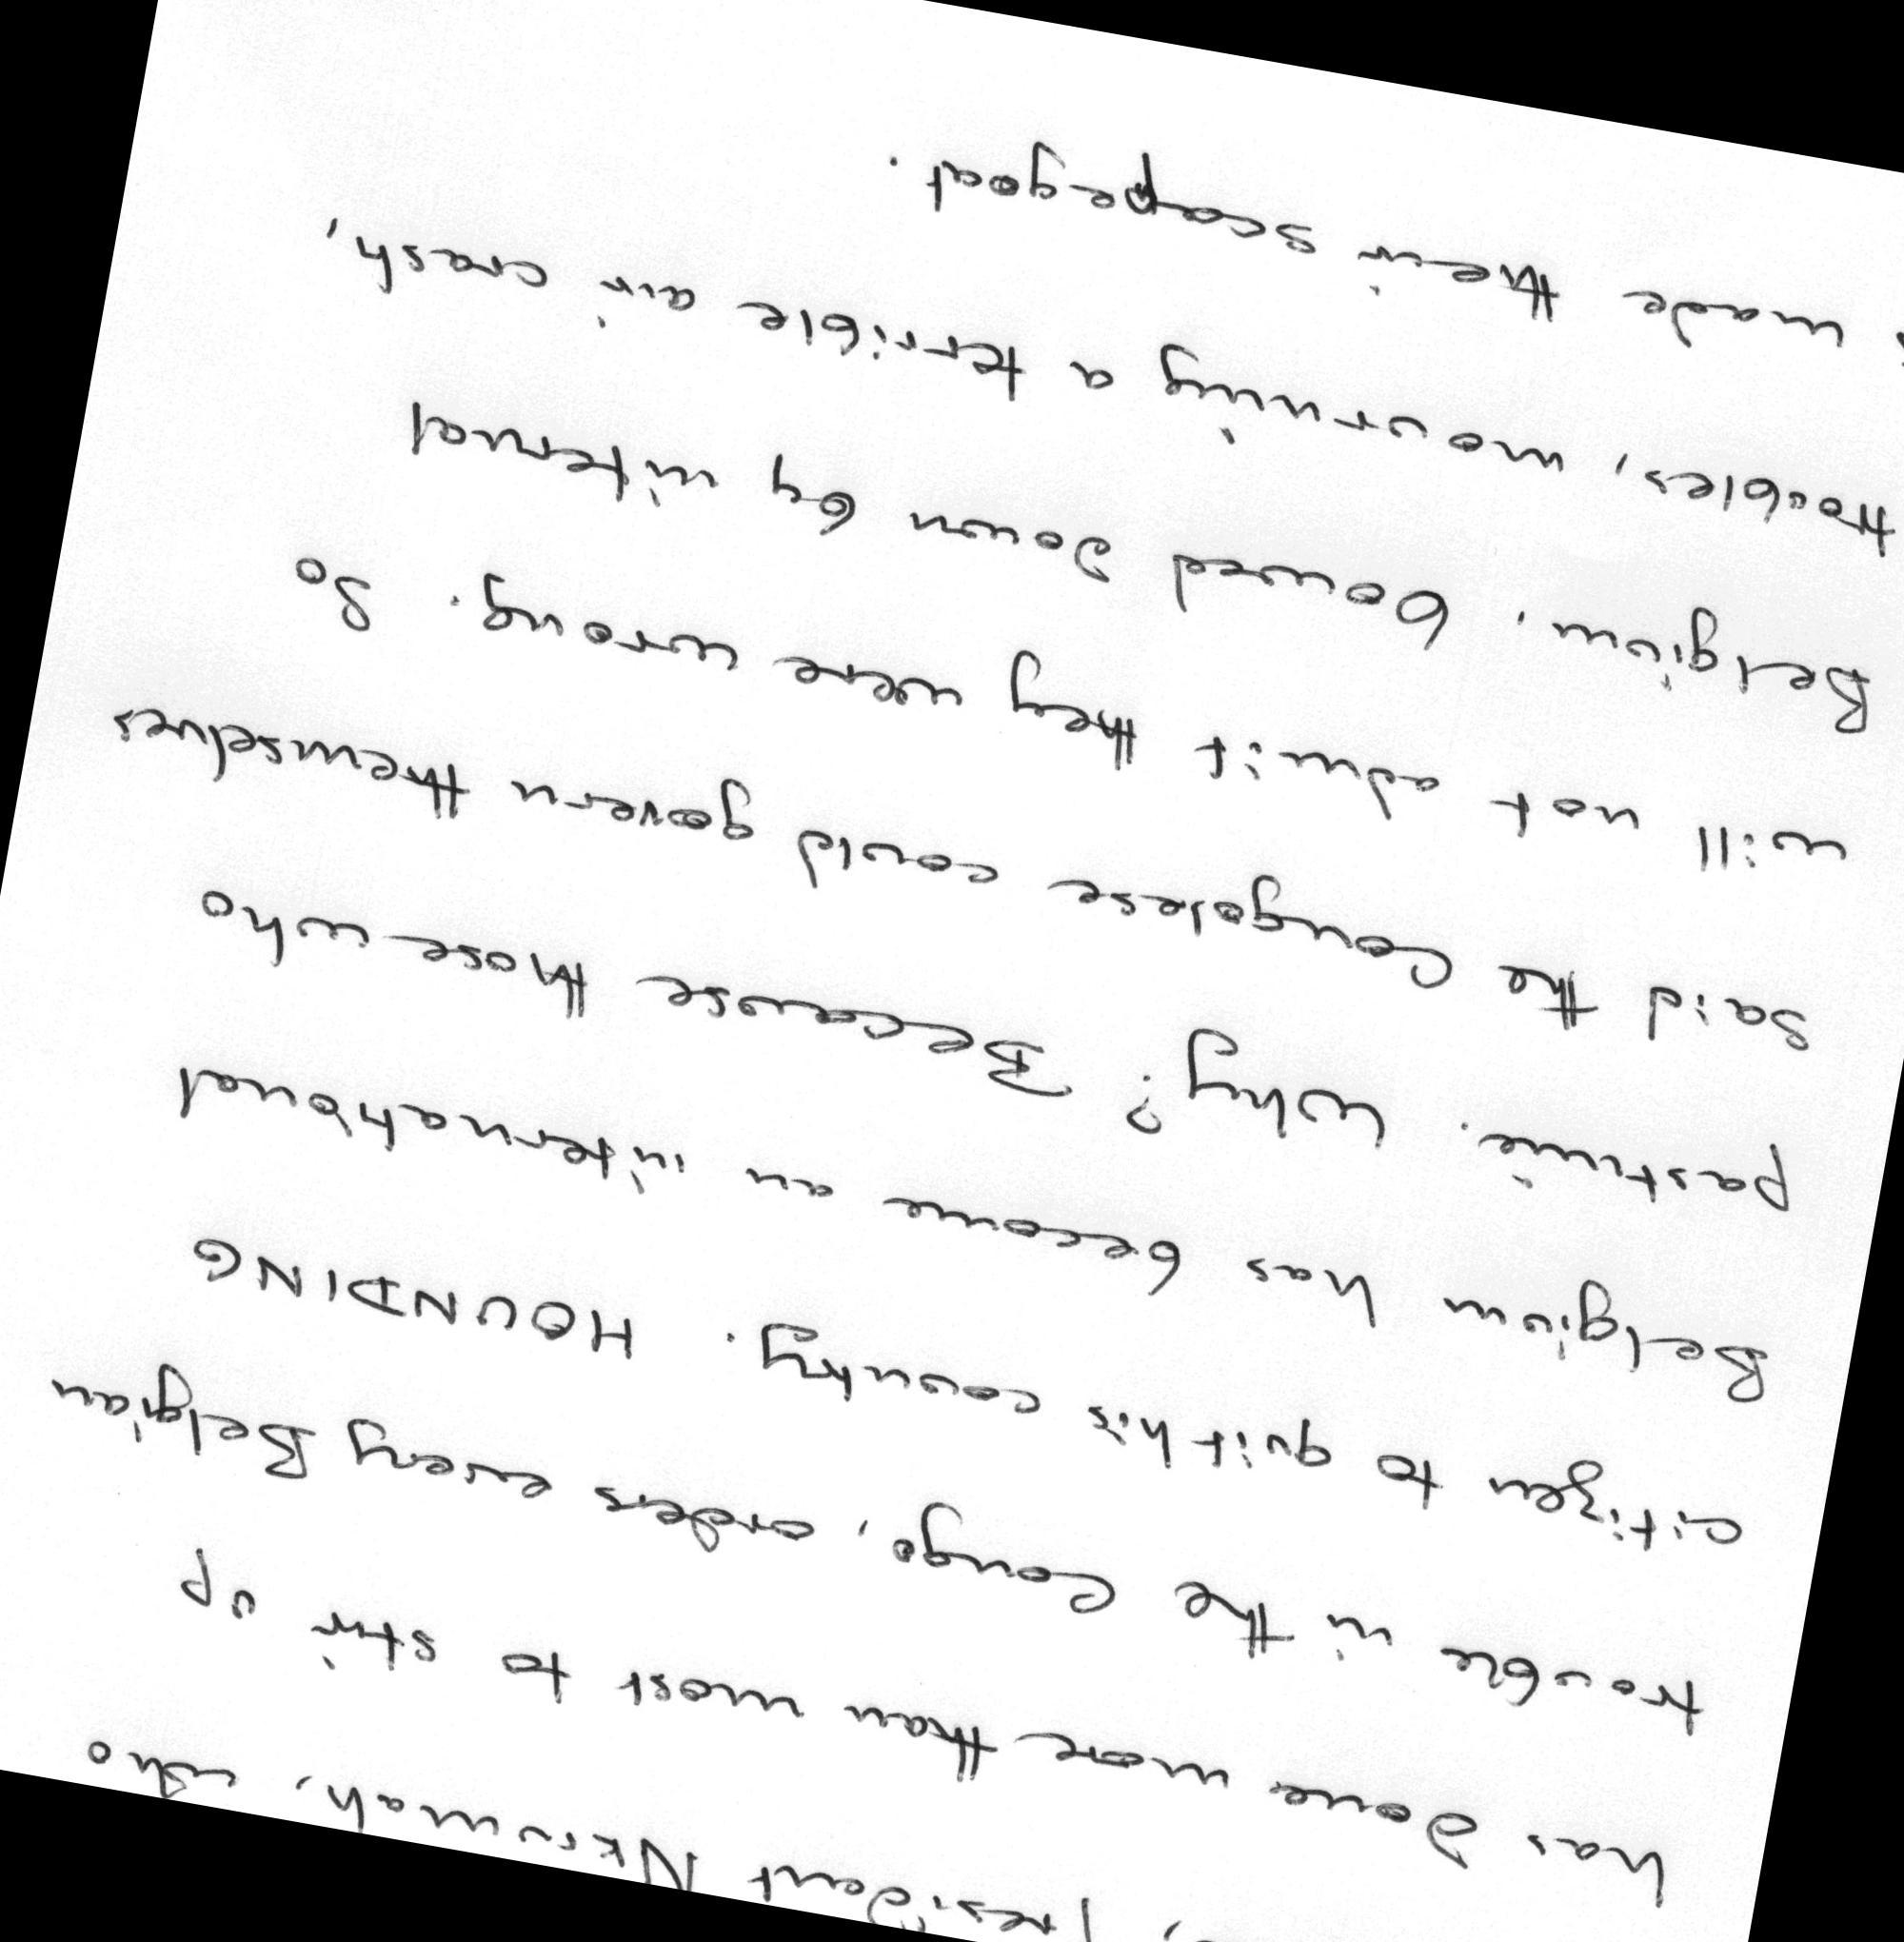 , President Nkrumah, who
has done more than most to stir up
trouble in the Congo, orders every Belgian
citizen to quit his country. HOUNDING
Belgium has become an international
pastime. Why? Because those who
said the Congolese could govern themselves
will not admit they were wrong. So
Belgium, bowed down by internal
troubles, mourning a terrible air crash,
made their scapegoat.